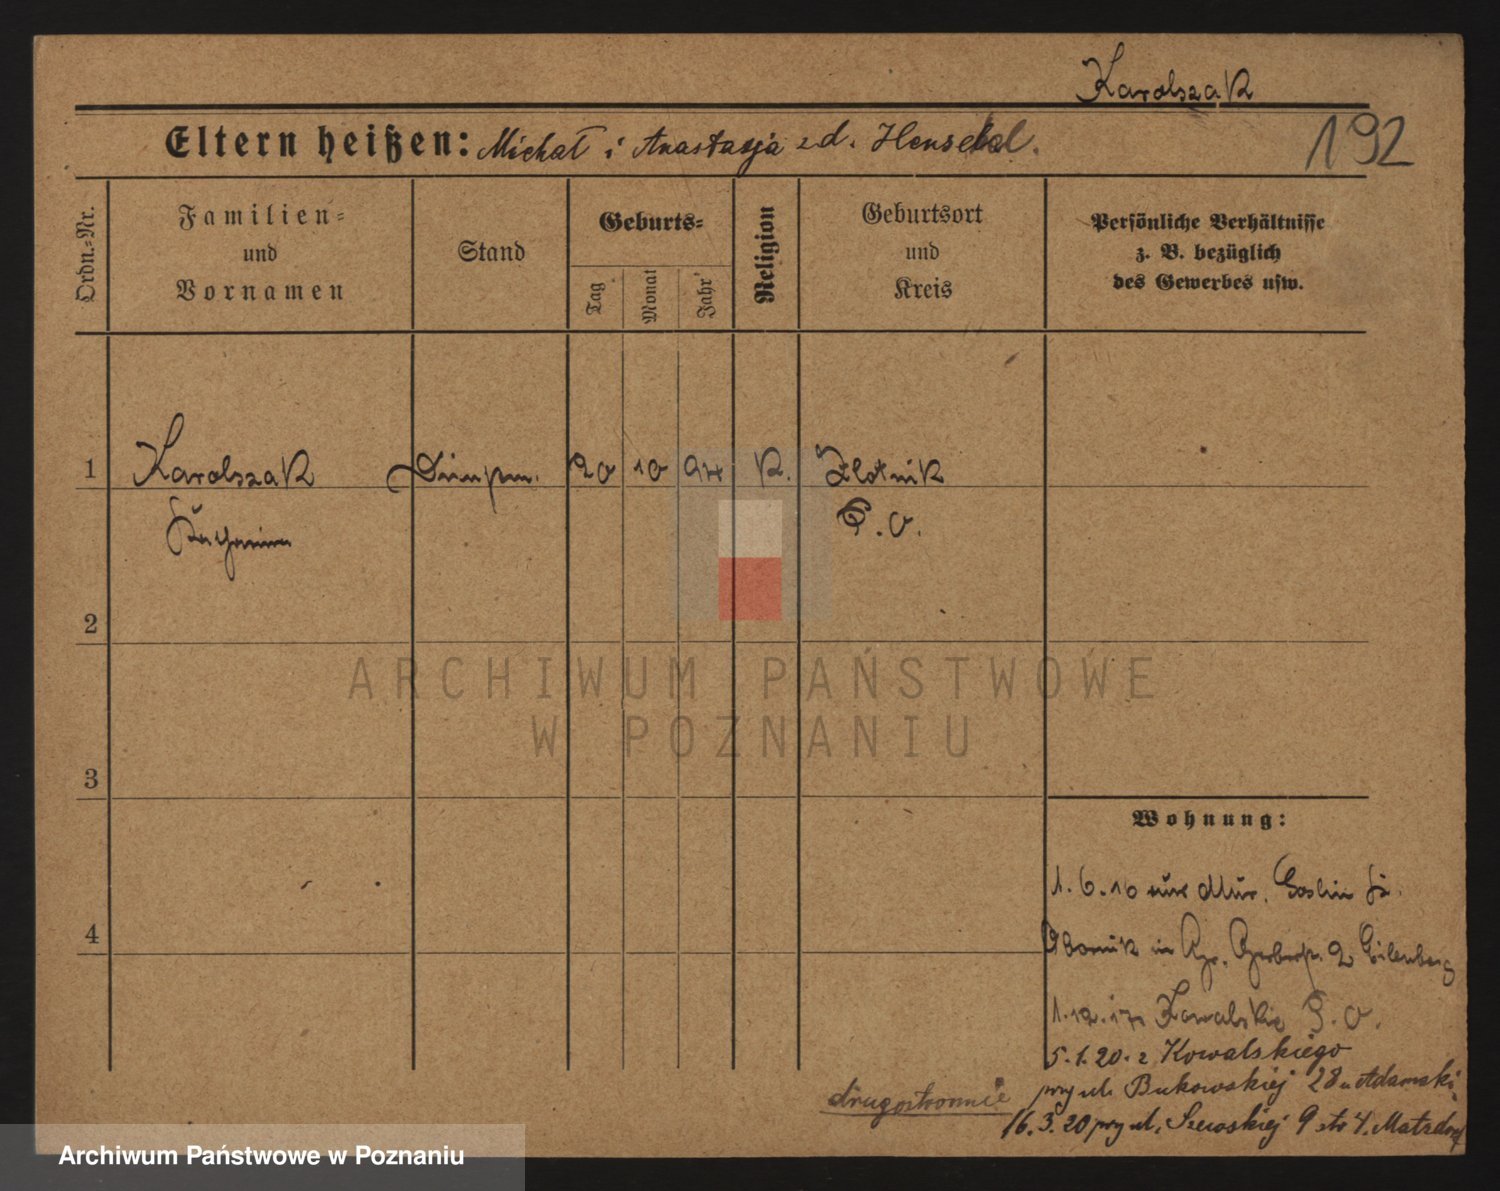 Karolszak
Eltern heißen: Michał i Anastazja z d. Hensel
192
Ordn.-Nr.
Familien-
und
Vornamen
Stand
Geburts-
Tag
Monat
Jahr
Religion
Geburtsort
und
Kreis
Persönliche Verhältnisse
z. B. bezüglich
des Gewerbes usw.
1
Karolszak
20 10 97 K. Zlotnik
P. O.
2
ARCHIWUM PAŃSTWOWE
W POZNANIU
3
Wohnung:
1.6.16 Mur. Goslin
4
Obornik in 2 Eilenberg
1.12.17 Kowalski P. O.
5.1.20. z Kowalskiego
przy ul. Bukowskiej 28 u Adamski
drugostronnie
16.3.20 przy ul. Szewskiej 9 Matzdorf
Archiwum Państwowe w Poznaniu